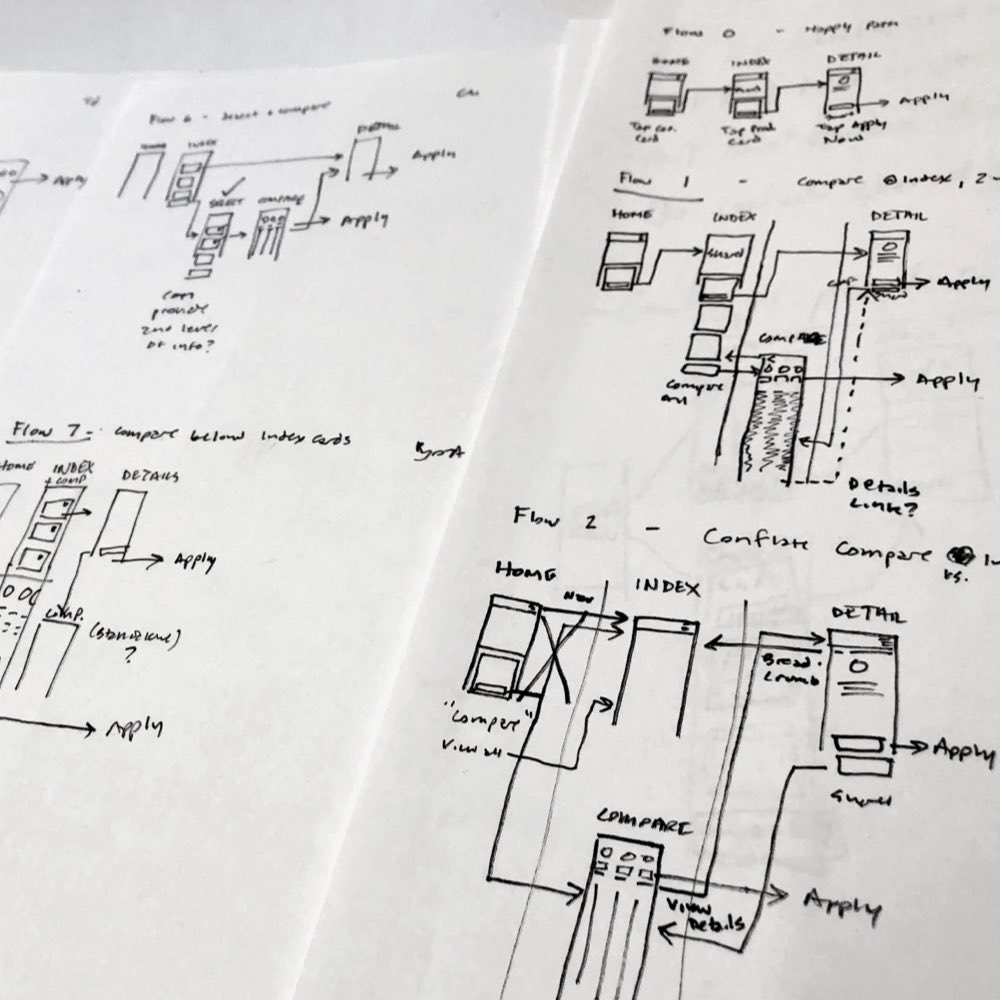 Flow 0 - Happy Path
HOME INDEX DETAIL
Apply
Tap Card
Tap Prod Card
Tap Apply Now
Flow 1 - Compare @ Index, 2-
HOME INDEX DETAIL
Apply
COMPARE
Apply
Compare
Details
Link?
Flow 2 - Conflate Compare
vs.
HOME INDEX DETAIL
Nav
Bread-
crumb
"Compare"
View all
Apply
COMPARE
View
Details
Apply
Flow 6 - Select + Compare
HOME INDEX DETAIL
Apply
SELECT COMPARE
Apply
Can
provide
2nd level
of info?
Apply
Flow 7 - Compare below index cards
Home INDEX DETAILS
+ COMP.
Apply
COMP.
(Standalone)
?
Apply